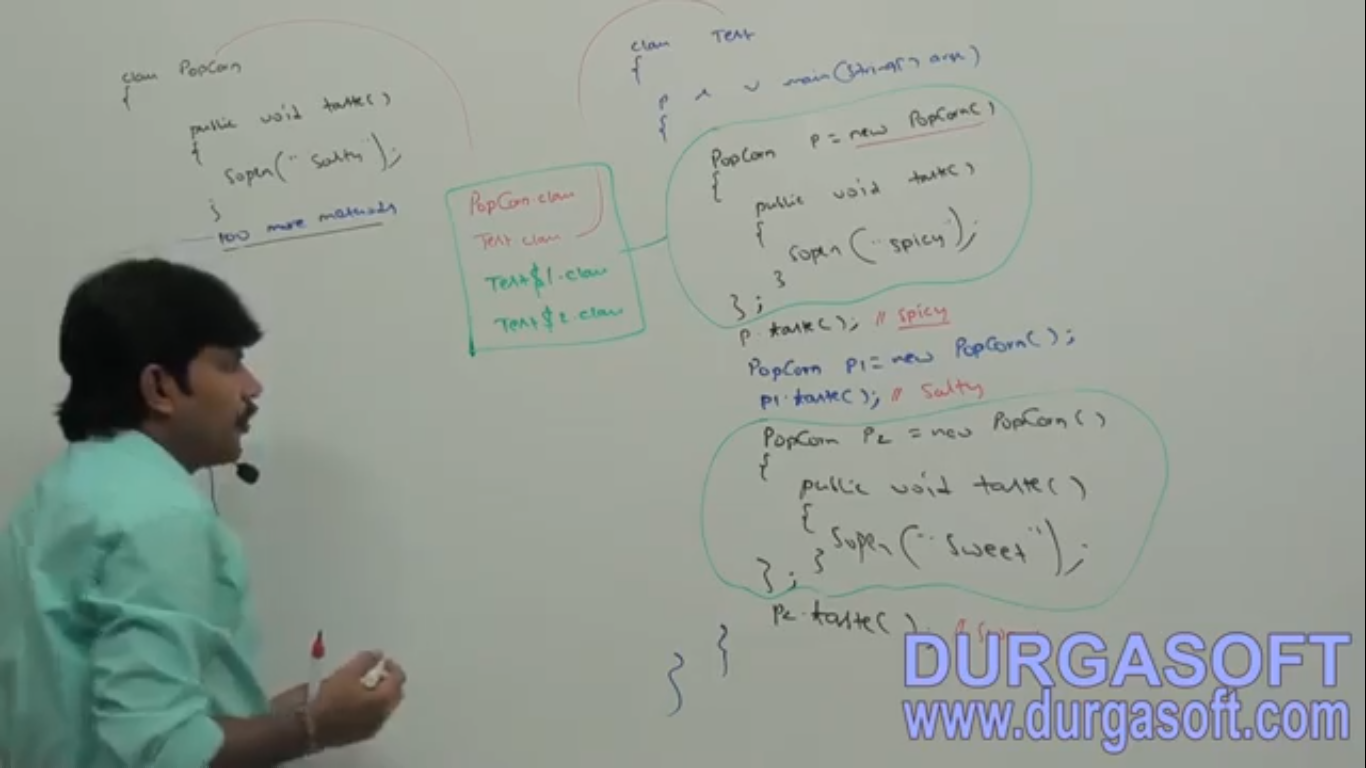 class PopCorn
{
public void taste()
{
Sopln("Salty");
}
100 more methods
PopCorn.class
Test.class
Test$1.class
Test$2.class
class Test
{
p s v main(String[] args)
{
PopCorn p = new PopCorn()
{
public void taste()
{
Sopln("spicy");
}
};
p.taste(); // spicy
PopCorn p1 = new PopCorn();
p1.taste(); // Salty
PopCorn p2 = new PopCorn()
{
public void taste()
{
Sopln("Sweet");
}
};
p2.taste(); //
}
}
DURGASOFT
www.durgasoft.com